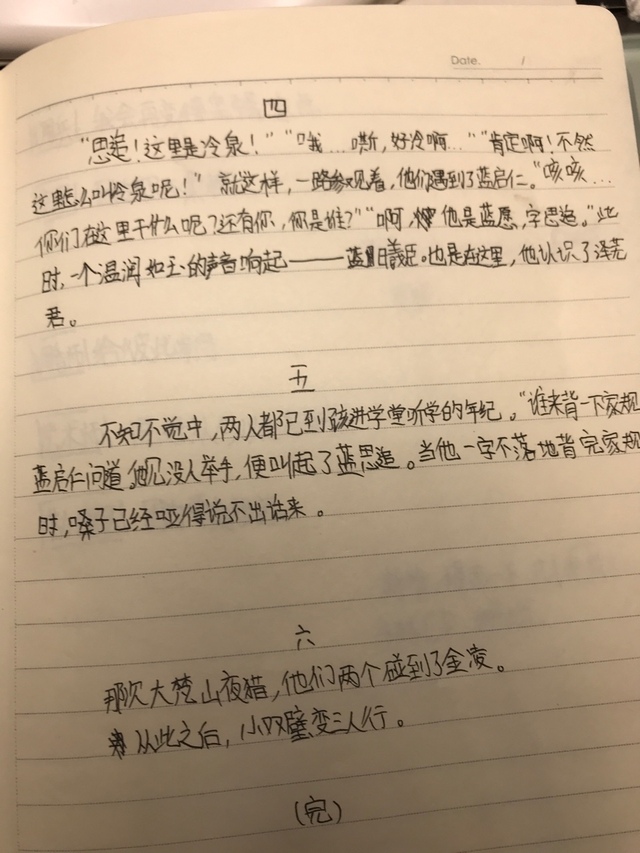 Date. /
四
“思追！这里是冷泉！”“哦…嘶，好冷啊…”“肯定啊！不然
这里怎么叫冷泉呢！”就这样，一路参观着，他们遇到了蓝启仁。“咳咳…
你们在这里干什么呢？还有你，你是谁？”“啊，他是蓝愿，字思追。”此
时，一个温润如玉的声音响起——蓝曦臣。也是在这里，他认识了泽芜
君。
五
不知不觉中，两人都已到该进学堂听学的年纪。“谁来背一下家规
蓝启仁问道。他见没人举手，便叫起了蓝思追。当他一字不落地背完家规
时，嗓子已经哑得说不出话来。
六
那次大梵山夜猎，他们两个碰到了金凌。
从此之后，小双璧变三人行。
（完）